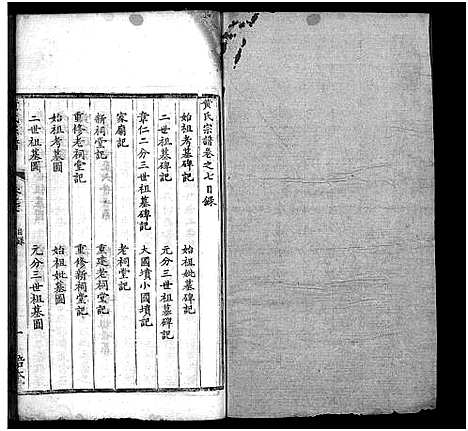 黄氏宗譜卷之七目錄
始祖考墓碑記 始祖妣墓碑記
二世祖墓碑記 元分三世祖墓碑記
章仁二分三世祖墓碑記 大園墳小園墳記
家廟記 老祠堂記
新祠堂記 重建老祠堂記
重修老祠堂記 重修新祠堂記
始祖考墓圖 始祖妣墓圖
二世祖墓圖 元分三世祖墓圖
目錄 一